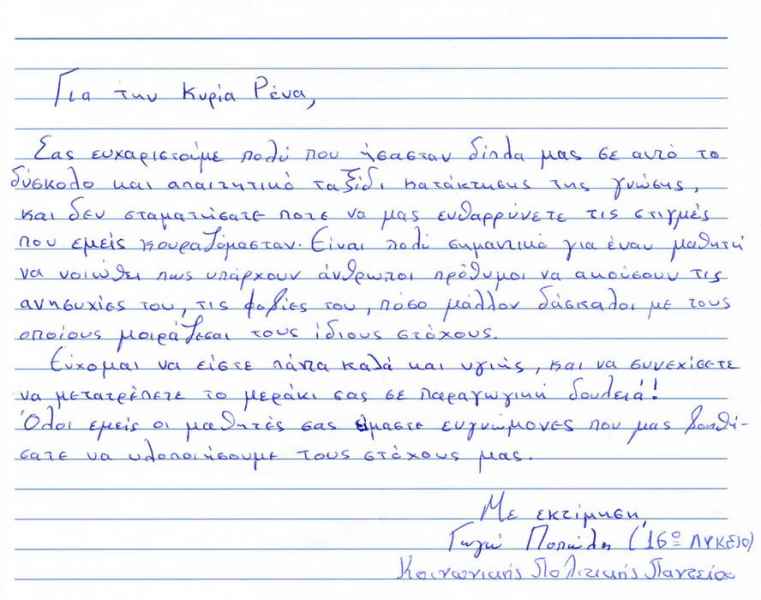 Για την Κυρία Ρένα,
Σας ευχαριστούμε πολύ που ήσασταν δίπλα μας σε αυτό το
δύσκολο και απαιτητικό ταξίδι κατάκτησης της γνώσης,
και δεν σταματήσατε ποτέ να μας ενθαρρύνετε τις στιγμές
που εμείς κουραζόμασταν. Είναι πολύ σημαντικό για έναν μαθητή
να νοιώθει πως υπάρχουν άνθρωποι πρόθυμοι να ακούσουν τις
ανησυχίες του, τις φοβίες του, πόσο μάλλον δάσκαλοι με τους
οποίους μοιράζεσαι τους ίδιους στόχους.
Εύχομαι να είστε πάντα καλά και υγιής, και να συνεχίσετε
να μετατρέπετε το μεράκι σας σε παραγωγική δουλειά!
Όλοι εμείς οι μαθητές σας είμαστε ευγνώμονες που μας βοηθή-
σατε να υλοποιήσουμε τους στόχους μας.
Με εκτίμηση,
Γωγώ (16ο ΛΥΚΕΙΟ)
Κοινωνικής Πολιτικής Πάντειο